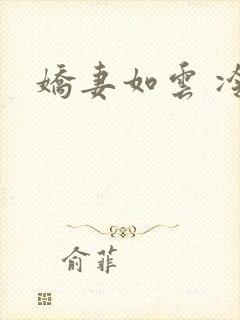 嬌妻如雲
俞菲